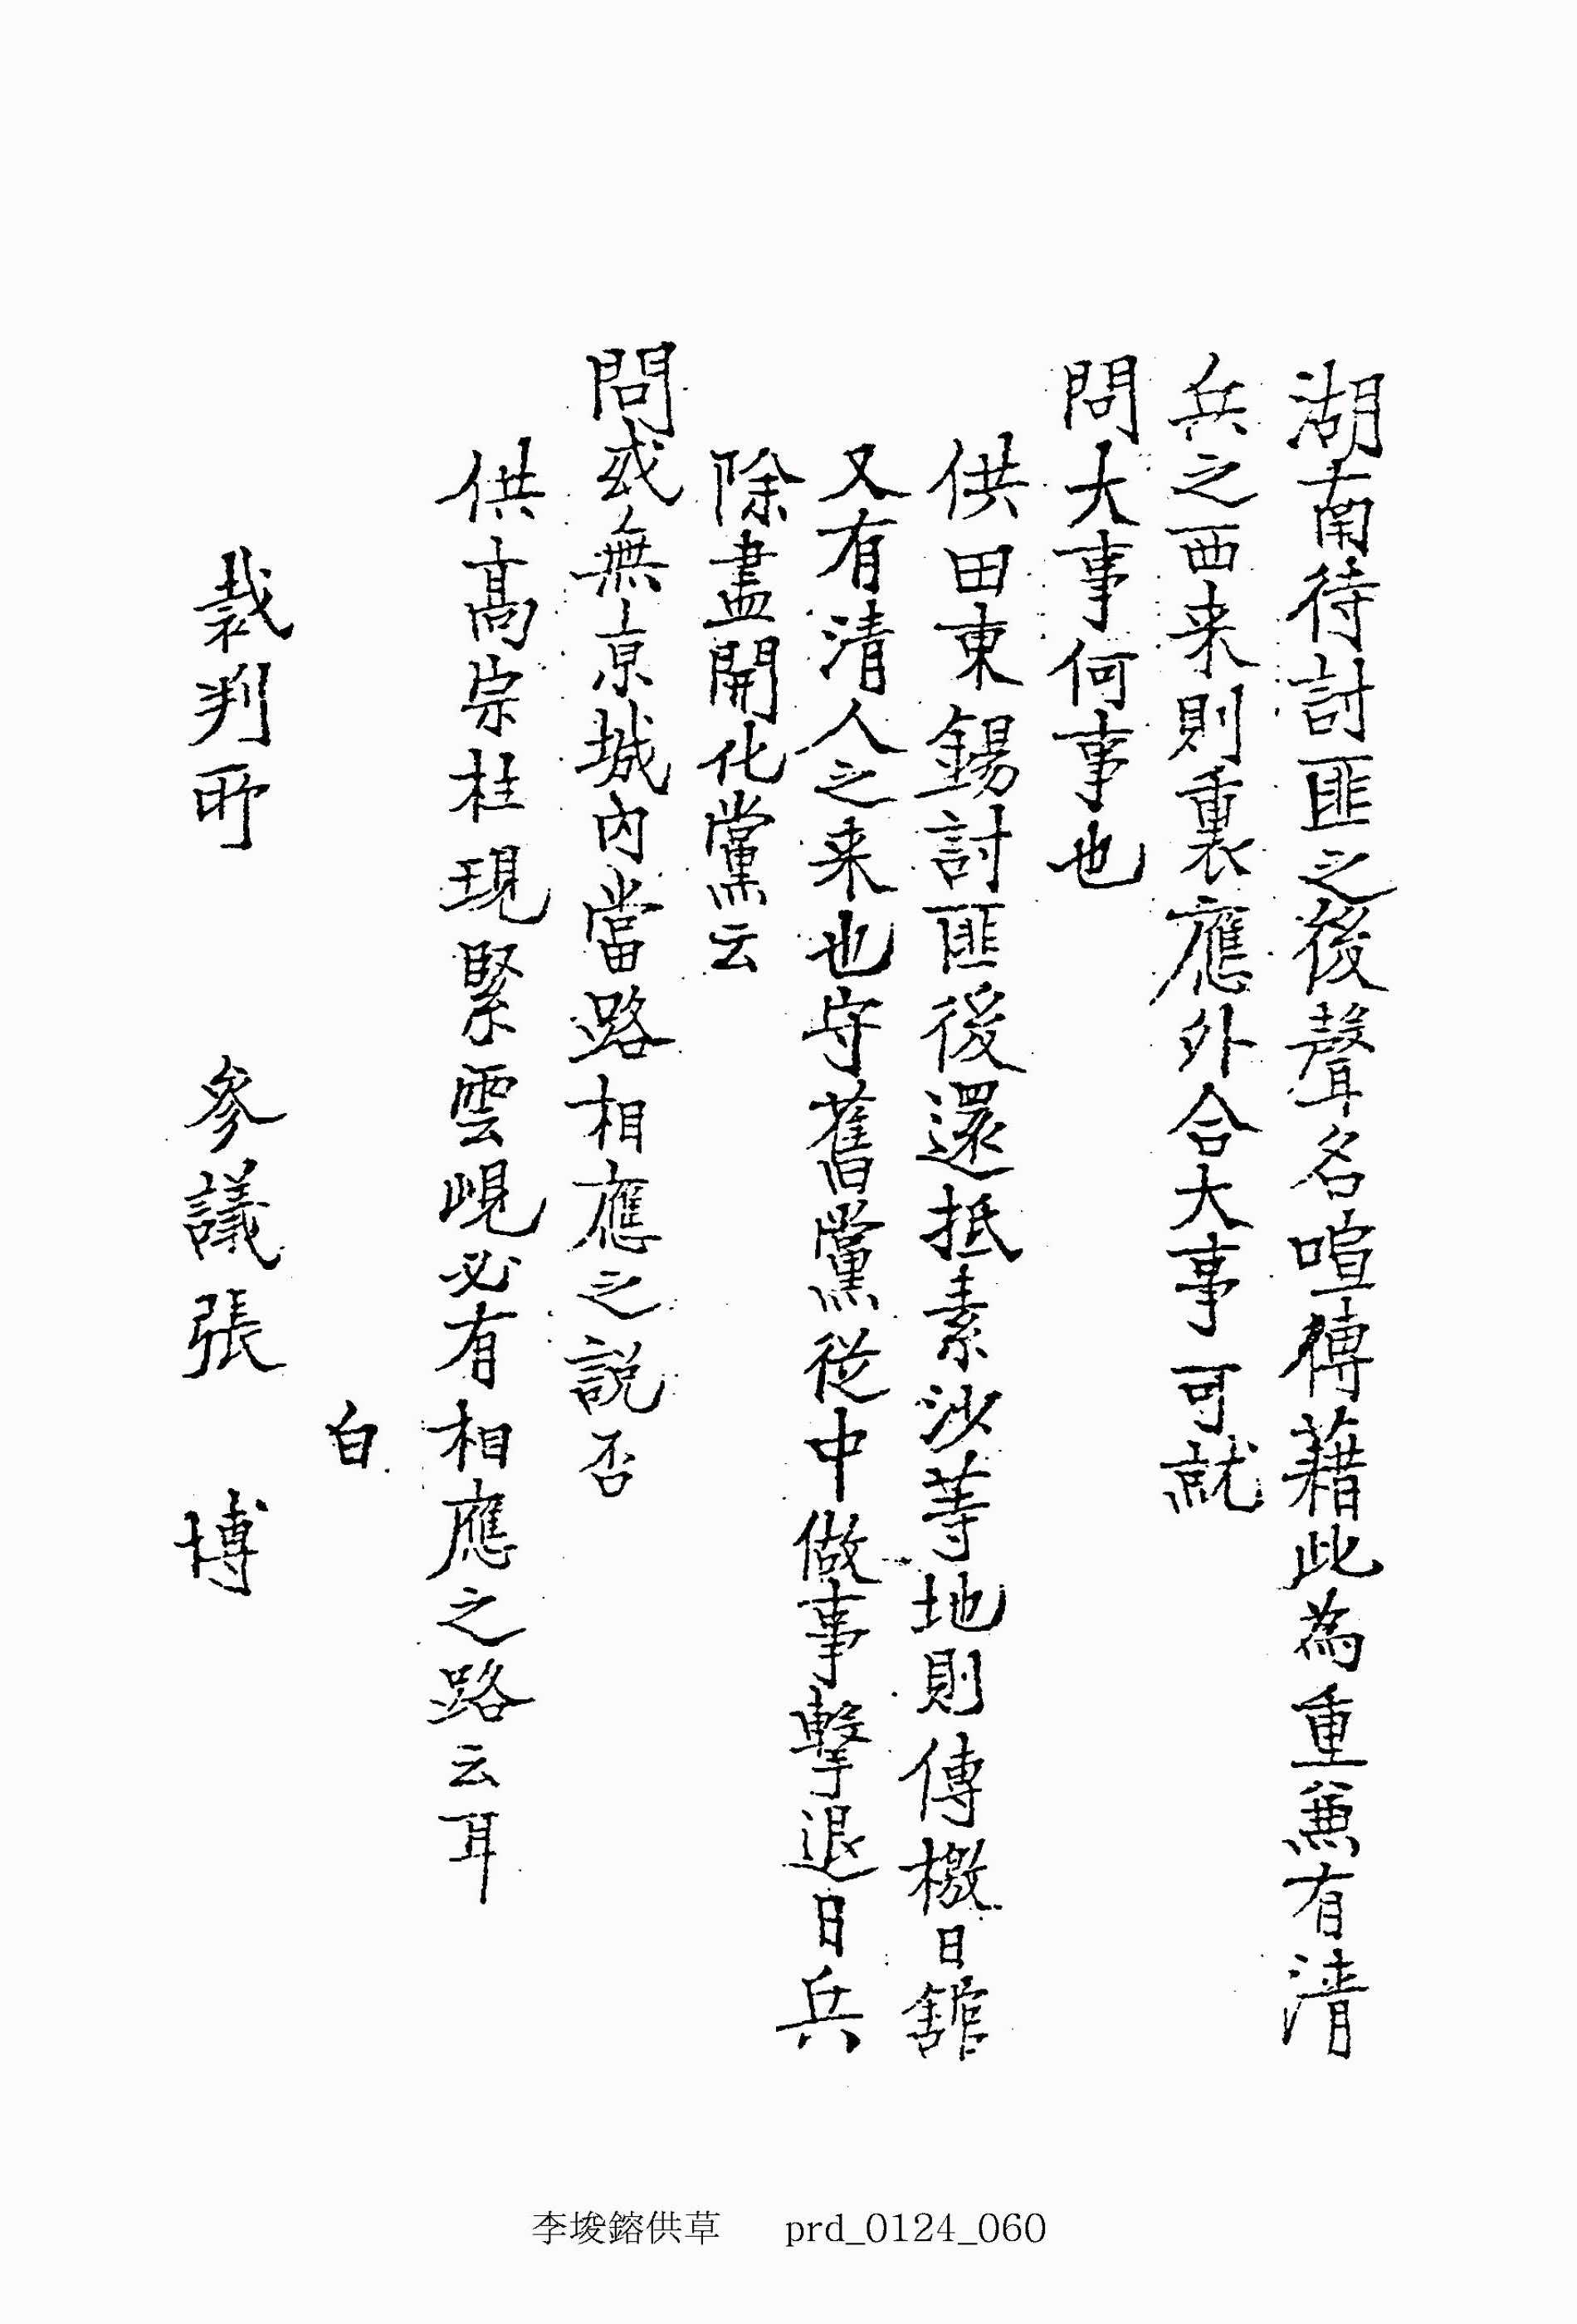 湖南待討匪之後聲名喧傳藉此為重兼有清
兵之西来則裏應外合大事可就
問大事何事也
供田東錫討匪後還抵素沙等地則傳檄日舘
又有清人之来也守舊黨從中做事擊退日兵
除盡開化黨云
問或無京城內當路相應之說否
供高宗柱現緊雲峴必有相應之路云耳
白
裁判所 參議張 博
李埈鎔供草 prd_0124_060